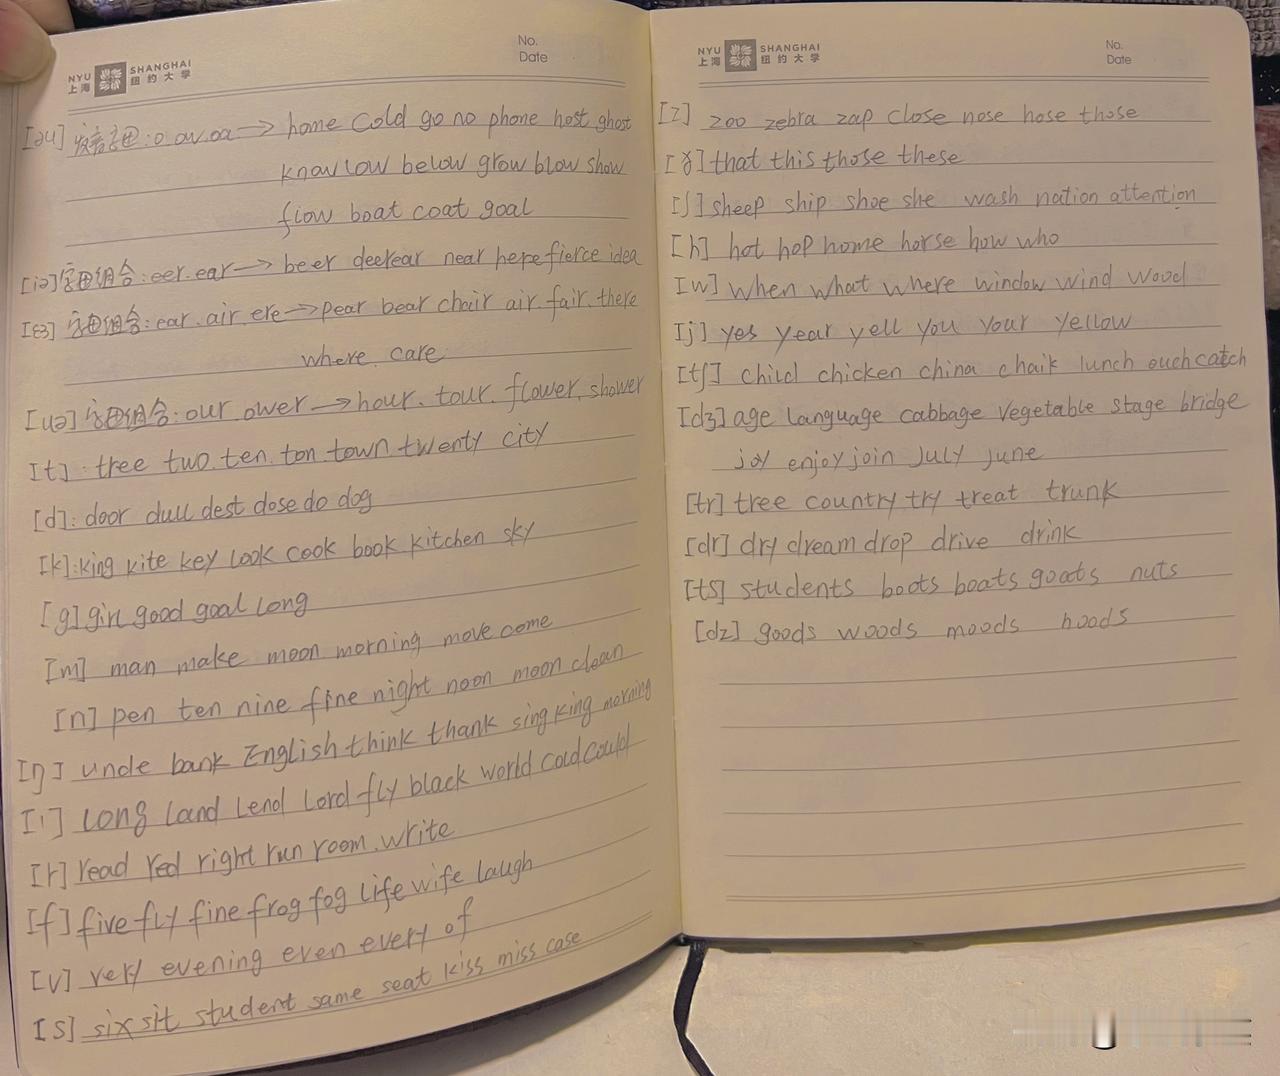 NYU SHANGHAI
上海 纽约大学
No.
Date
[əu] 发音字母:o.ow.oa → home cold go no phone host ghost
know low below grow blow show
flow boat coat goal
[iə] 字母组合:eer.ear → beer deer ear near here fierce idea
[ɛə] 字母组合:ear.air.ere → pear bear chair air.fair.there
where.care
[uə] 字母组合:our.ower → hour.tour.flower.shower
[t]:tree two.ten.ton.town.twenty city
[d]:door dull dest dose do dog
[k]:king kite key look cook book kitchen sky
[g] girl good goal long
[m] man make moon morning move come
[n] pen ten nine fine night noon moon clean
[ŋ] uncle bank English think thank sing king morning
[l] long land lend lord fly black world cold could
[r] read red right run room.write
[f] five fly fine frog fog life wife laugh
[v] very evening even every of
[s] six sit student same seat kiss miss case
NYU SHANGHAI
上海 纽约大学
No.
Date
[z] zoo zebra zap close nose hose those
[ð] that this those these
[ʃ] sheep ship shoe she wash nation attention
[h] hot hop home horse how who
[w] when what where window wind wood
[j] yes year yell you your yellow
[tʃ] child chicken china chaik lunch ouch catch
[dʒ] age language cabbage vegetable stage bridge
joy enjoy join July june
[tr] tree country try treat trunk
[dr] dry dream drop drive drink
[ts] students boots boats goats nuts
[dz] goods woods moods hoods